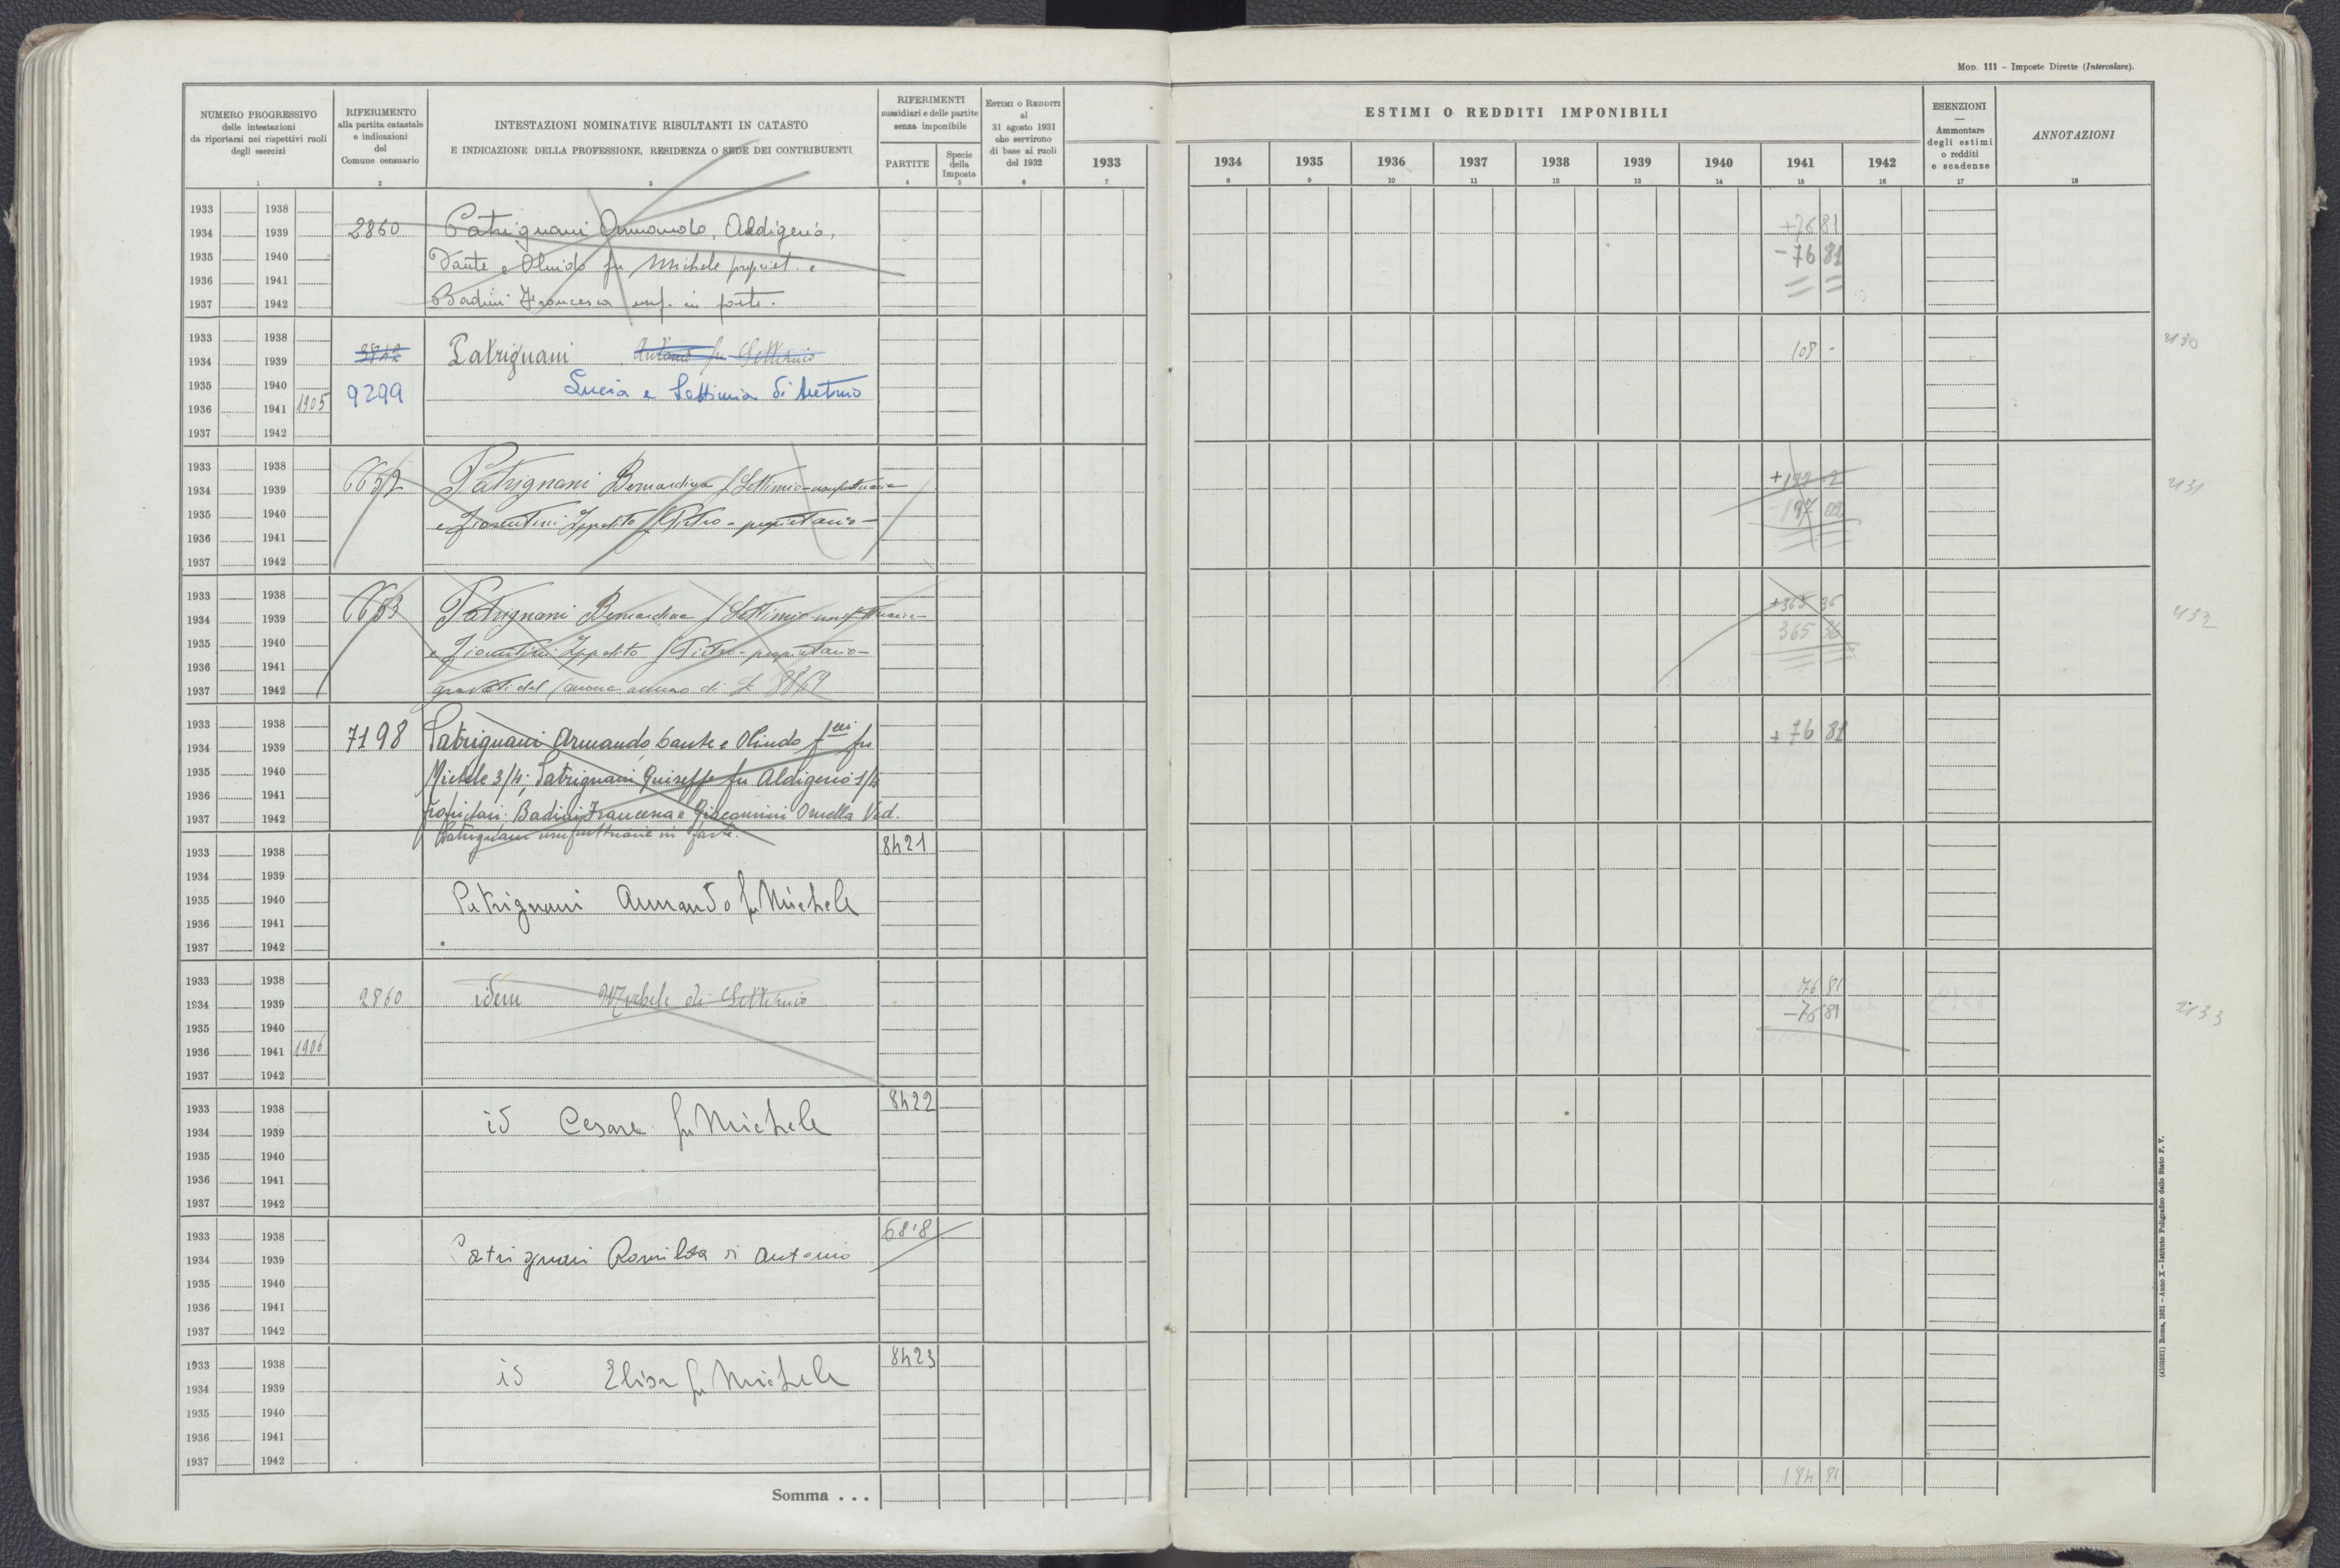 MOD. 111 - Imposte Dirette (Intercalare).
NUMERO PROGRESSIVO
delle intestazioni
da riportarsi nei rispettivi ruoli
degli esercizi
RIFERIMENTO
alla partita catastale
e indicazioni
del
Comune censuario
INTESTAZIONI NOMINATIVE RISULTANTI IN CATASTO
E INDICAZIONE DELLA PROFESSIONE, RESIDENZA O SEDE DEI CONTRIBUENTI
RIFERIMENTI
sussidiari e delle partite
senza imponibile
PARTITE
Specie
della
Imposta
ESTIMI O REDDITI
al
31 agosto 1931
che servirono
di base ai ruoli
del 1932
ESTIMI O REDDITI IMPONIBILI
1933 1934 1935 1936 1937 1938 1939 1940 1941 1942
ESENZIONI
—
Ammontare
degli estimi
o redditi
e scadenze
ANNOTAZIONI
1 2 3 4 5 6 7 8 9 10 11 12 13 14 15 16 17 18
1933 1938
1934 1939 2860 Patrignani Armando, Aldigerio, +76 81
1935 1940 Dante e Olindo fu Michele propriet. e -76 81
1936 1941
1937 1942 Badini Francesca usuf. in parte.
1933 1938
1934 1939 Patrignani Antonio fu Settimio 108 - 2130
1935 1940 9299 Lucia e Settimia di Antonio
1936 1941 1905
1937 1942
1933 1938
1934 1939 6652 Patrignani Bernardina f Settimio-usufruttuaria 2131
1935 1940 e Fiorentini Ippolito f Pietro - proprietario -
1936 1941
1937 1942
1933 1938
1934 1939 6653 Patrignani Bernardina f Settimio-usufruttuaria- +365 36 2132
1935 1940 e Fiorentini Ippolito f Pietro - proprietario - 365 36
1936 1941
1937 1942 gravati del canone annuo di £
1933 1938
1934 1939 7198 Patrignani Armando Dante e Olindo flli fu +76 81
1935 1940 Michele 3/4; Patrignani Giuseppe fu Aldigerio 1/4
1936 1941
1937 1942 Propritari: Badini Francesca e Giacomini Ornella Ved.
Patrignani usufruttuarie in parte.
1933 1938 8421
1934 1939
1935 1940 Patrignani Armando fu Michele
1936 1941
1937 1942
1933 1938 76 81
1934 1939 2860 idem Michele di Settimio -76 81 2133
1935 1940
1936 1941 1906
1937 1942
1933 1938 8422
1934 1939 id Cesare fu Michele
1935 1940
1936 1941
1937 1942
1933 1938
1934 1939 Patrignani Romilda di Antonio
1935 1940
1936 1941
1937 1942
1933 1938 8423
1934 1939 id Elisa fu Michele
1935 1940
1936 1941
1937 1942
184 81
Somma . . .
(4103581) Roma, 1931 - Anno X - Istituto Poligrafico dello Stato P. V.